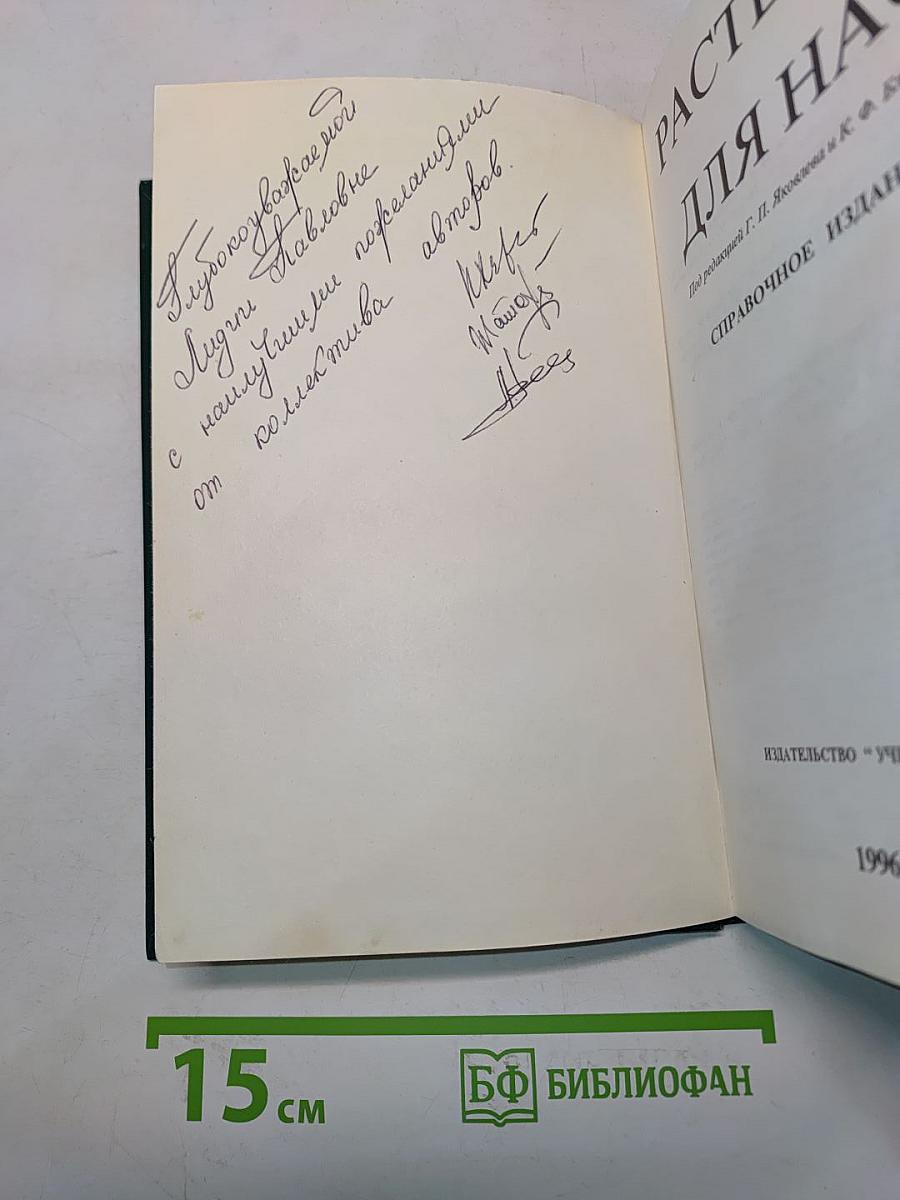 Глубокоуважаемой
Лидии Павловне
с наилучшими пожеланиями
от коллектива авторов.
РАСТЕ
ДЛЯ НАС
Под редакцией Г. П. Яковлева и К. Ф.
СПРАВОЧНОЕ ИЗДАН
ИЗДАТЕЛЬСТВО "УЧ
1996
15 см
БФ БИБЛИОФАН